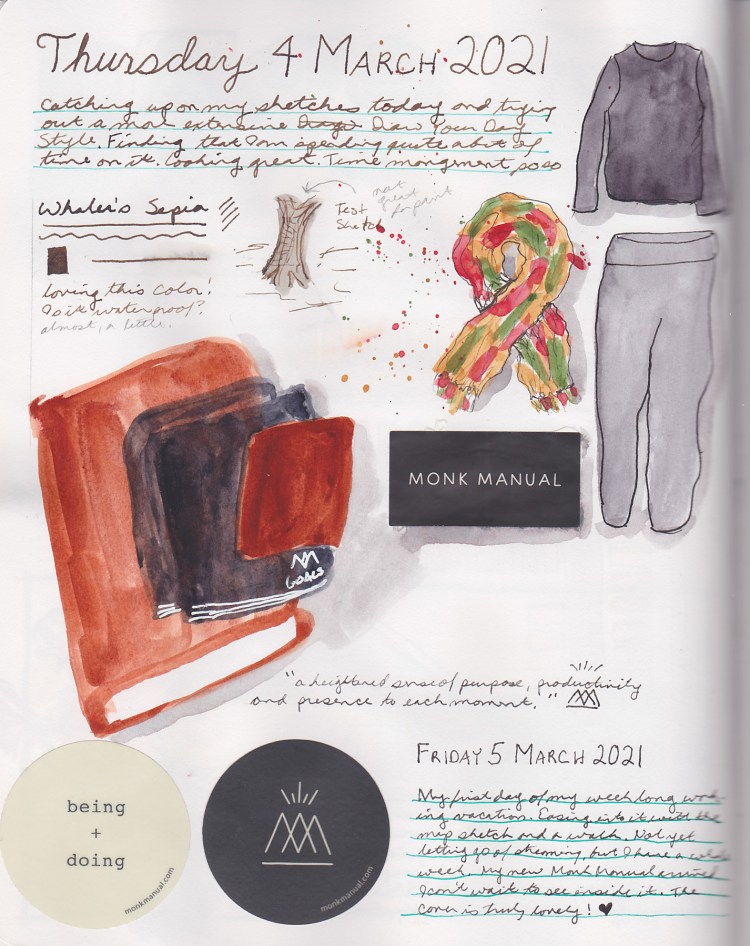 Thursday 4 March 2021
Catching up on my sketches today and trying
out a more extensive Draw Your Day
Style. Finding that I am spending quite a bit of
time on it. Looking great. Time mangement so so
Whaler's Sepia
Test
Sketch
not
great
for paint
Loving this color!
Is it waterproof?
almost, a little.
MONK MANUAL
GOALS
"a heightened sense of purpose, productivity
and presence to each moment."
being
+
doing
monkmanual.com
monkmanual.com
Friday 5 March 2021
My first day of my week long work-
ing vacation. Easing into it with the
map sketch and a walk. Not yet
letting go of steaming, but I have a whole
week. My new Monk Manual arrived
I can't wait to see inside it. The
cover is truly lovely! ♥